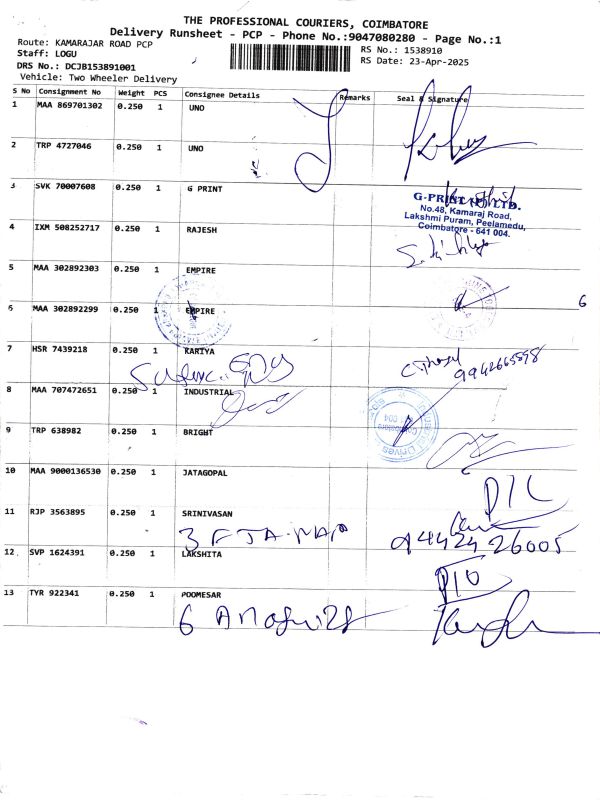 THE PROFESSIONAL COURIERS, COIMBATORE
Delivery Runsheet - PCP - Phone No.:9047080280 - Page No.:1
Route: KAMARAJAR ROAD PCP
RS No.: 1538910
Staff: LOGU
RS Date: 23-Apr-2025
DRS No.: DCJB153891001
Vehicle: Two Wheeler Delivery
S No Consignment No Weight PCS Consignee Details Remarks Seal & Signature
1 MAA 869701302 0.250 1 UNO
2 TRP 4727046 0.250 1 UNO
3 SVK 70007608 0.250 1 G PRINT
G-PRINT LTD.
No.48, Kamaraj Road,
Lakshmi Puram, Peelamedu,
Coimbatore - 641 004.
4 IXM 508252717 0.250 1 RAJESH
5 MAA 302892303 0.250 1 EMPIRE
6 MAA 302892299 0.250 1 EMPIRE
6
7 HSR 7439218 0.250 1 KARIYA
9942665898
8 MAA 707472651 0.250 1 INDUSTRIAL
9 TRP 638982 0.250 1 BRIGHT
10 MAA 9000136530 0.250 1 JATAGOPAL
11 RJP 3563895 0.250 1 SRINIVASAN
9442426005
12 SVP 1624391 0.250 1 LAKSHITA
13 TYR 922341 0.250 1 POOMESAR